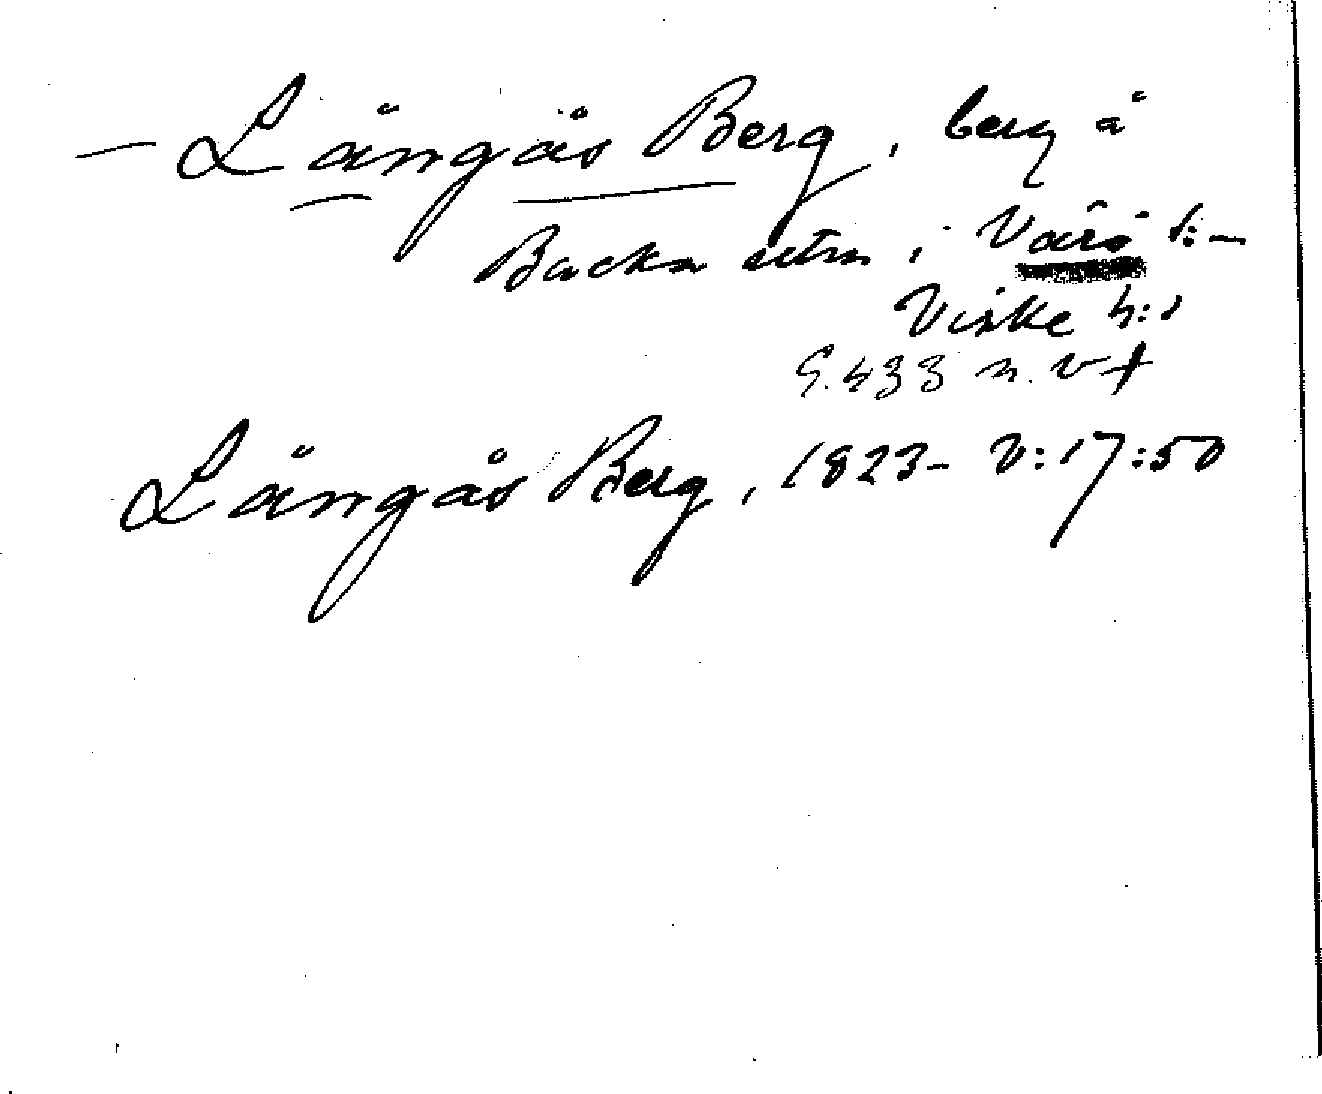 — Långås Berg, berg å
Backa utm. i Värö s:n
Viske h:d
S. 433 n. v.
Långås Berg, 1823 - V:17:50